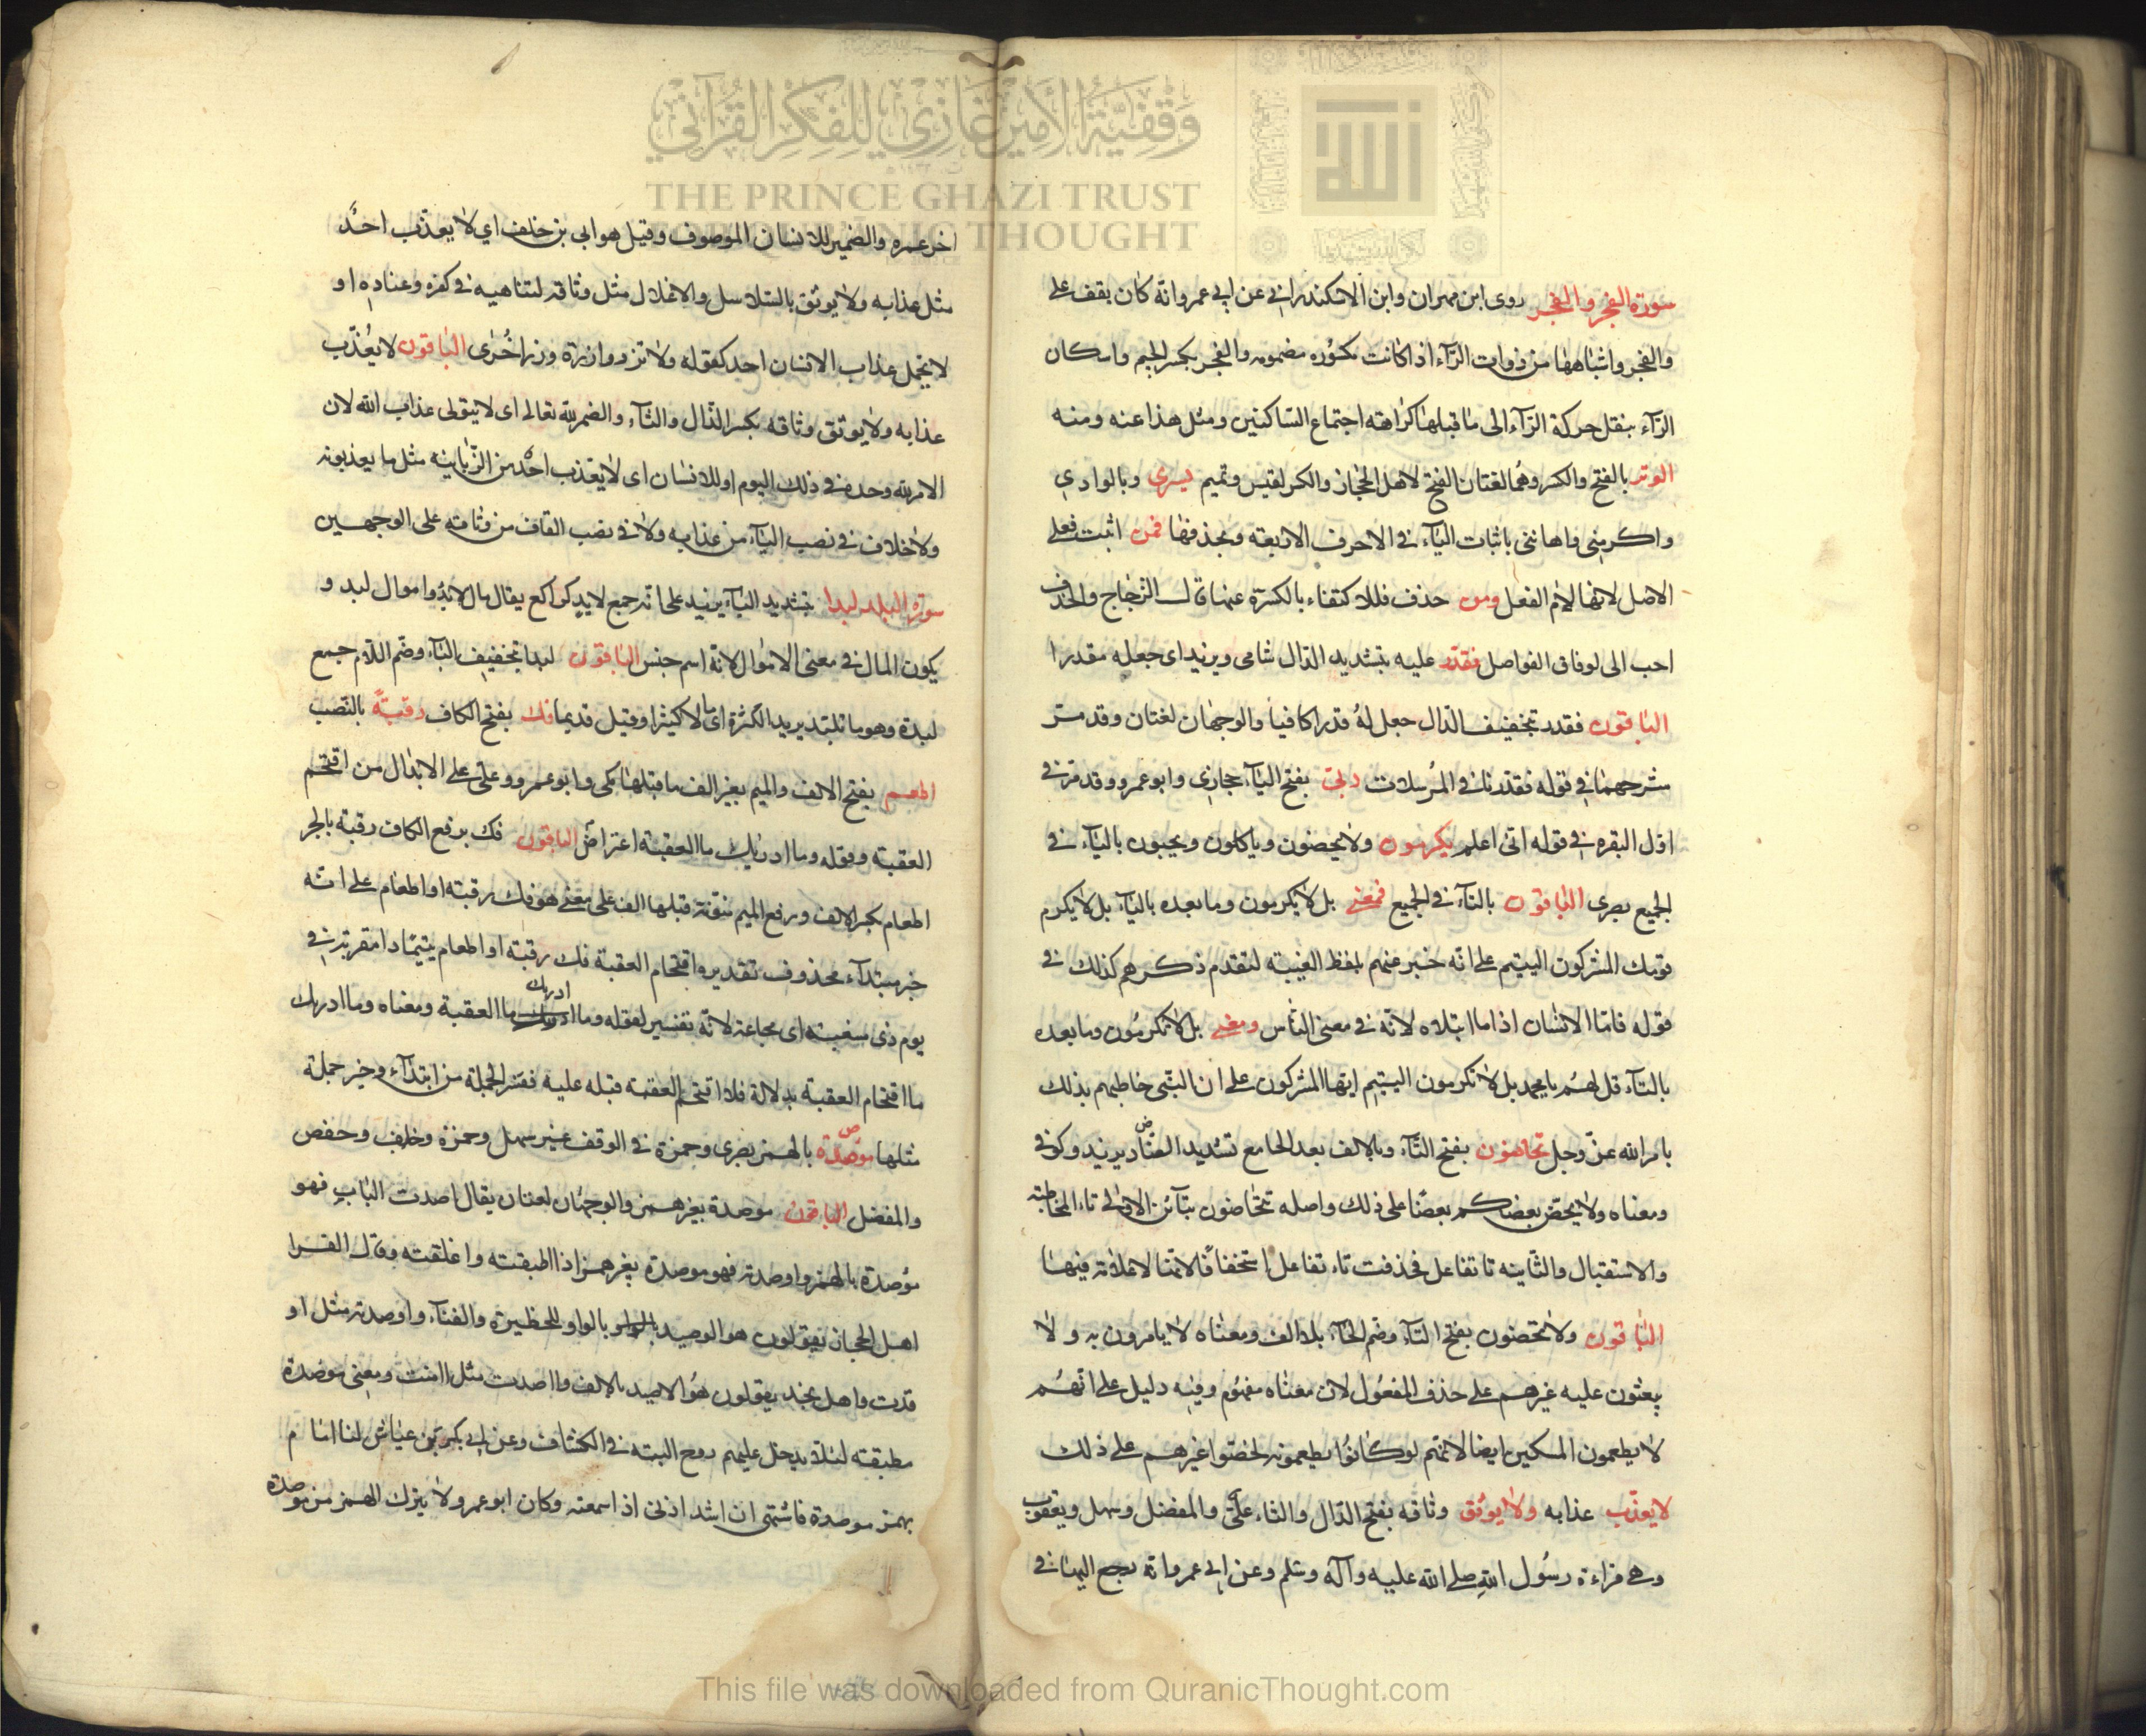 وقفية الأمير غازي للفكر القرآني
THE PRINCE GHAZI TRUST
FOR QUR'ANIC THOUGHT
سورة الفجر والفجر روى ابن مهران وابن الاسكندراني عن ابي عمرو انه كان يقف على
والفجر واشباهها من ذوات الرآء اذا كانت مكسوره مضمومه والفجر بكسر الجيم واسكان
الرآء بنقل حركة الرآء الى ما قبلها كراهته اجتماع الساكنين ومثل هذا عنه ومنه
الوتر بالفتح والكسر وهما لغتان الفتح لاهل الحجاز والكسر لقيس وتميم يسرى وبالوادي
واكرمني واهانني باثبات اليآء في الاحرف الاربعة وبحذفها فمن اثبت فعلى
الاصل لانها لام الفعل ومن حذف فللاكتفاء بالكسرة عنها قال الزجاج والحذف
احب الى لوفاق الفواصل فقدّر عليه بتشديد الدال شامى ويزيد اى جعله مقدرا
الباقون فقدر بتخفيف الدال جعل له قدرا كافيا والوجهان لغتان وقد مر
شرحهما في قوله فقدرنا في المرسلات ربى بفتح اليآء حجازى وابو عمرو وقد مر في
اول البقره في قوله انى اعلم يكرمون ولا يحضون وياكلون ويحبون باليآء في
الجميع بصرى الباقون بالتآء في الجميع فمعنى بل لا يكرمون وما بعده باليآء بل لا يكرم
قومك المشركون اليتيم على انه خبر عنهم بلفظ الغيبة لتقدم ذكرهم كذلك في
قوله فاما الانسان اذا ما ابتلاه لانه في معنى الناس ومعنى بل لا تكرمون وما بعده
بالتآء قل لهم يا محمد بل لا تكرمون اليتيم ايها المشركون على ان النبى خاطبهم بذلك
بامر الله عز وجل تحاضون بفتح التآء وبالالف بعد الحا مع تشديد الضاد يزيد وكوفي
ومعناه ولا يحض بعضكم بعضا على ذلك واصله تتحاضون بتآئن الاولى تاء المخاطبة
والاستقبال والثانية تا تفاعل فحذفت تاء تفاعل استخفافا لانها لا علامة فيها
الباقون ولا تحضون بفتح التآء وضم الحآء بلا الف ومعناه لا يامرون به ولا
يبعثون عليه غيرهم على حذف المفعول لان معناه مفهوم وفيه دليل على انهم
لا يطعمون المسكين ايضا لانهم لو كانوا يطعمونه لحضوا غيرهم على ذلك
لا يعذّب عذابه ولا يوثق وثاقه بفتح الذال والثاء على والمفضل وسهل ويعقوب
وهى قراءة رسول الله صلى الله عليه وآله وسلم وعن ابى عمرو انه رجع اليها في
اخر عمره والضمير للانسان الموصوف وقيل هو ابى بن خلف اي لا يعذّب احد
مثل عذابه ولا يوثق بالسلاسل والاغلال مثل وثاقه لتناهيه في كفره وعناده او
لا يحمل عذاب الانسان احد كقوله ولا تزر وازرة وزر اخرى الباقون لا يعذّب
عذابه ولا يوثق وثاقه بكسر الذال والثآء والضمر لله تعالى اى لا يتولى عذاب الله لان
الامر لله وحده في ذلك اليوم او للانسان اى لا يعذب احد من الزبانية مثل ما يعذبونه
ولا خلاف في نصب البآء من عذابه ولا في نصب القاف من وثاقه على الوجهين
سورة البلد لبدا بتشديد البآء يزيد على انه جمع لابد كراكع يقال مال لابد واموال لبد و
يكون المال في معنى الاموال لانه اسم جنس الباقون لبدا بتخفيف البآء وضم اللام جمع
لبدة وهو ما تلبد يريد الكثرة اى مالا كثيرا وقيل قديما فك بفتح الكاف رقبةً بالنصب
اطعم بفتح الالف والميم بغير الف ما قبلها مكى وابو عمرو وعلى على الابدال من اقتحم
العقبة وقوله وما ادريك ما العقبة اعتراض الباقون فك برفع الكاف رقبة بالجر
اطعام بكسر الالف ورفع الميم منونة قبلها الف على معنى هو فك رقبة او اطعام على انه
خبر مبتدآء محذوف تقديره اقتحام العقبة فك رقبة او اطعام يتيما ذا مقربة في
يوم ذى مسغبة اى مجاعة لانه تفسير لقوله وما ادريك ما العقبة ومعناه وما ادريك
ما اقتحام العقبة بدلالة فلا اقتحم العقبة قبله عليه ففسر الجملة من ابتدآء وخبر جملة
مثلها موصدة بالهمز بصرى وحمزة في الوقف غير سهل وحمزة وخلف وحفص
والمفضل الباقون موصدة بغير همز والوجهان لغتان يقال اصدت الباب فهو
مؤصدة بالهمز واوصدته فهو موصدة بغير همز اذا اطبقته واغلقته وقال الفرا
اهل الحجاز يقولون هو الوصيد بالواو للحظيرة والفنآء واوصدته مثل او
قدت واهل نجد يقولون هو الاصيد بالالف وااصدت مثل اامنت ومعنى موصدة
مطبقة لئلا يدخل عليهم روح البته في الكشاف وعن ابي بكر بن عياش لنا امام
بهمز موصدة فاشتهى ان اشد اذنى اذ اسمعته وكان ابو عمرو لا يترك الهمز من موصدة
This file was downloaded from QuranicThought.com